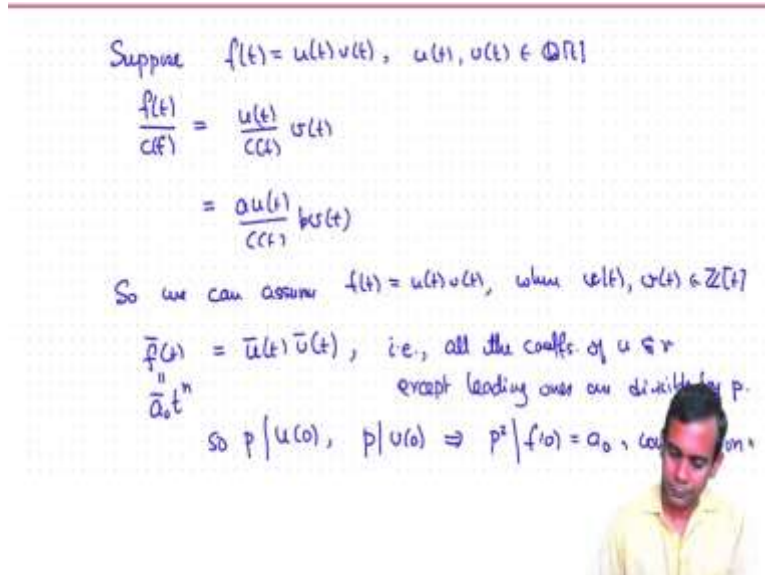 Suppose f(t) = u(t)v(t), u(t), v(t) ∈ ℚ[t]
f(t)/c(f) = u(t)/c(f) v(t)
= au(t)/c(f) bv(t)
So we can assume f(t) = u(t)v(t), when u(t), v(t) ∈ ℤ[t]
f̄(t) = ū(t) v̄(t), i.e., all the coeffs. of u & v
ā₀tⁿ except leading ones are divisible by p.
so p | u(0), p | v(0) ⇒ p² | f(0) = a₀,